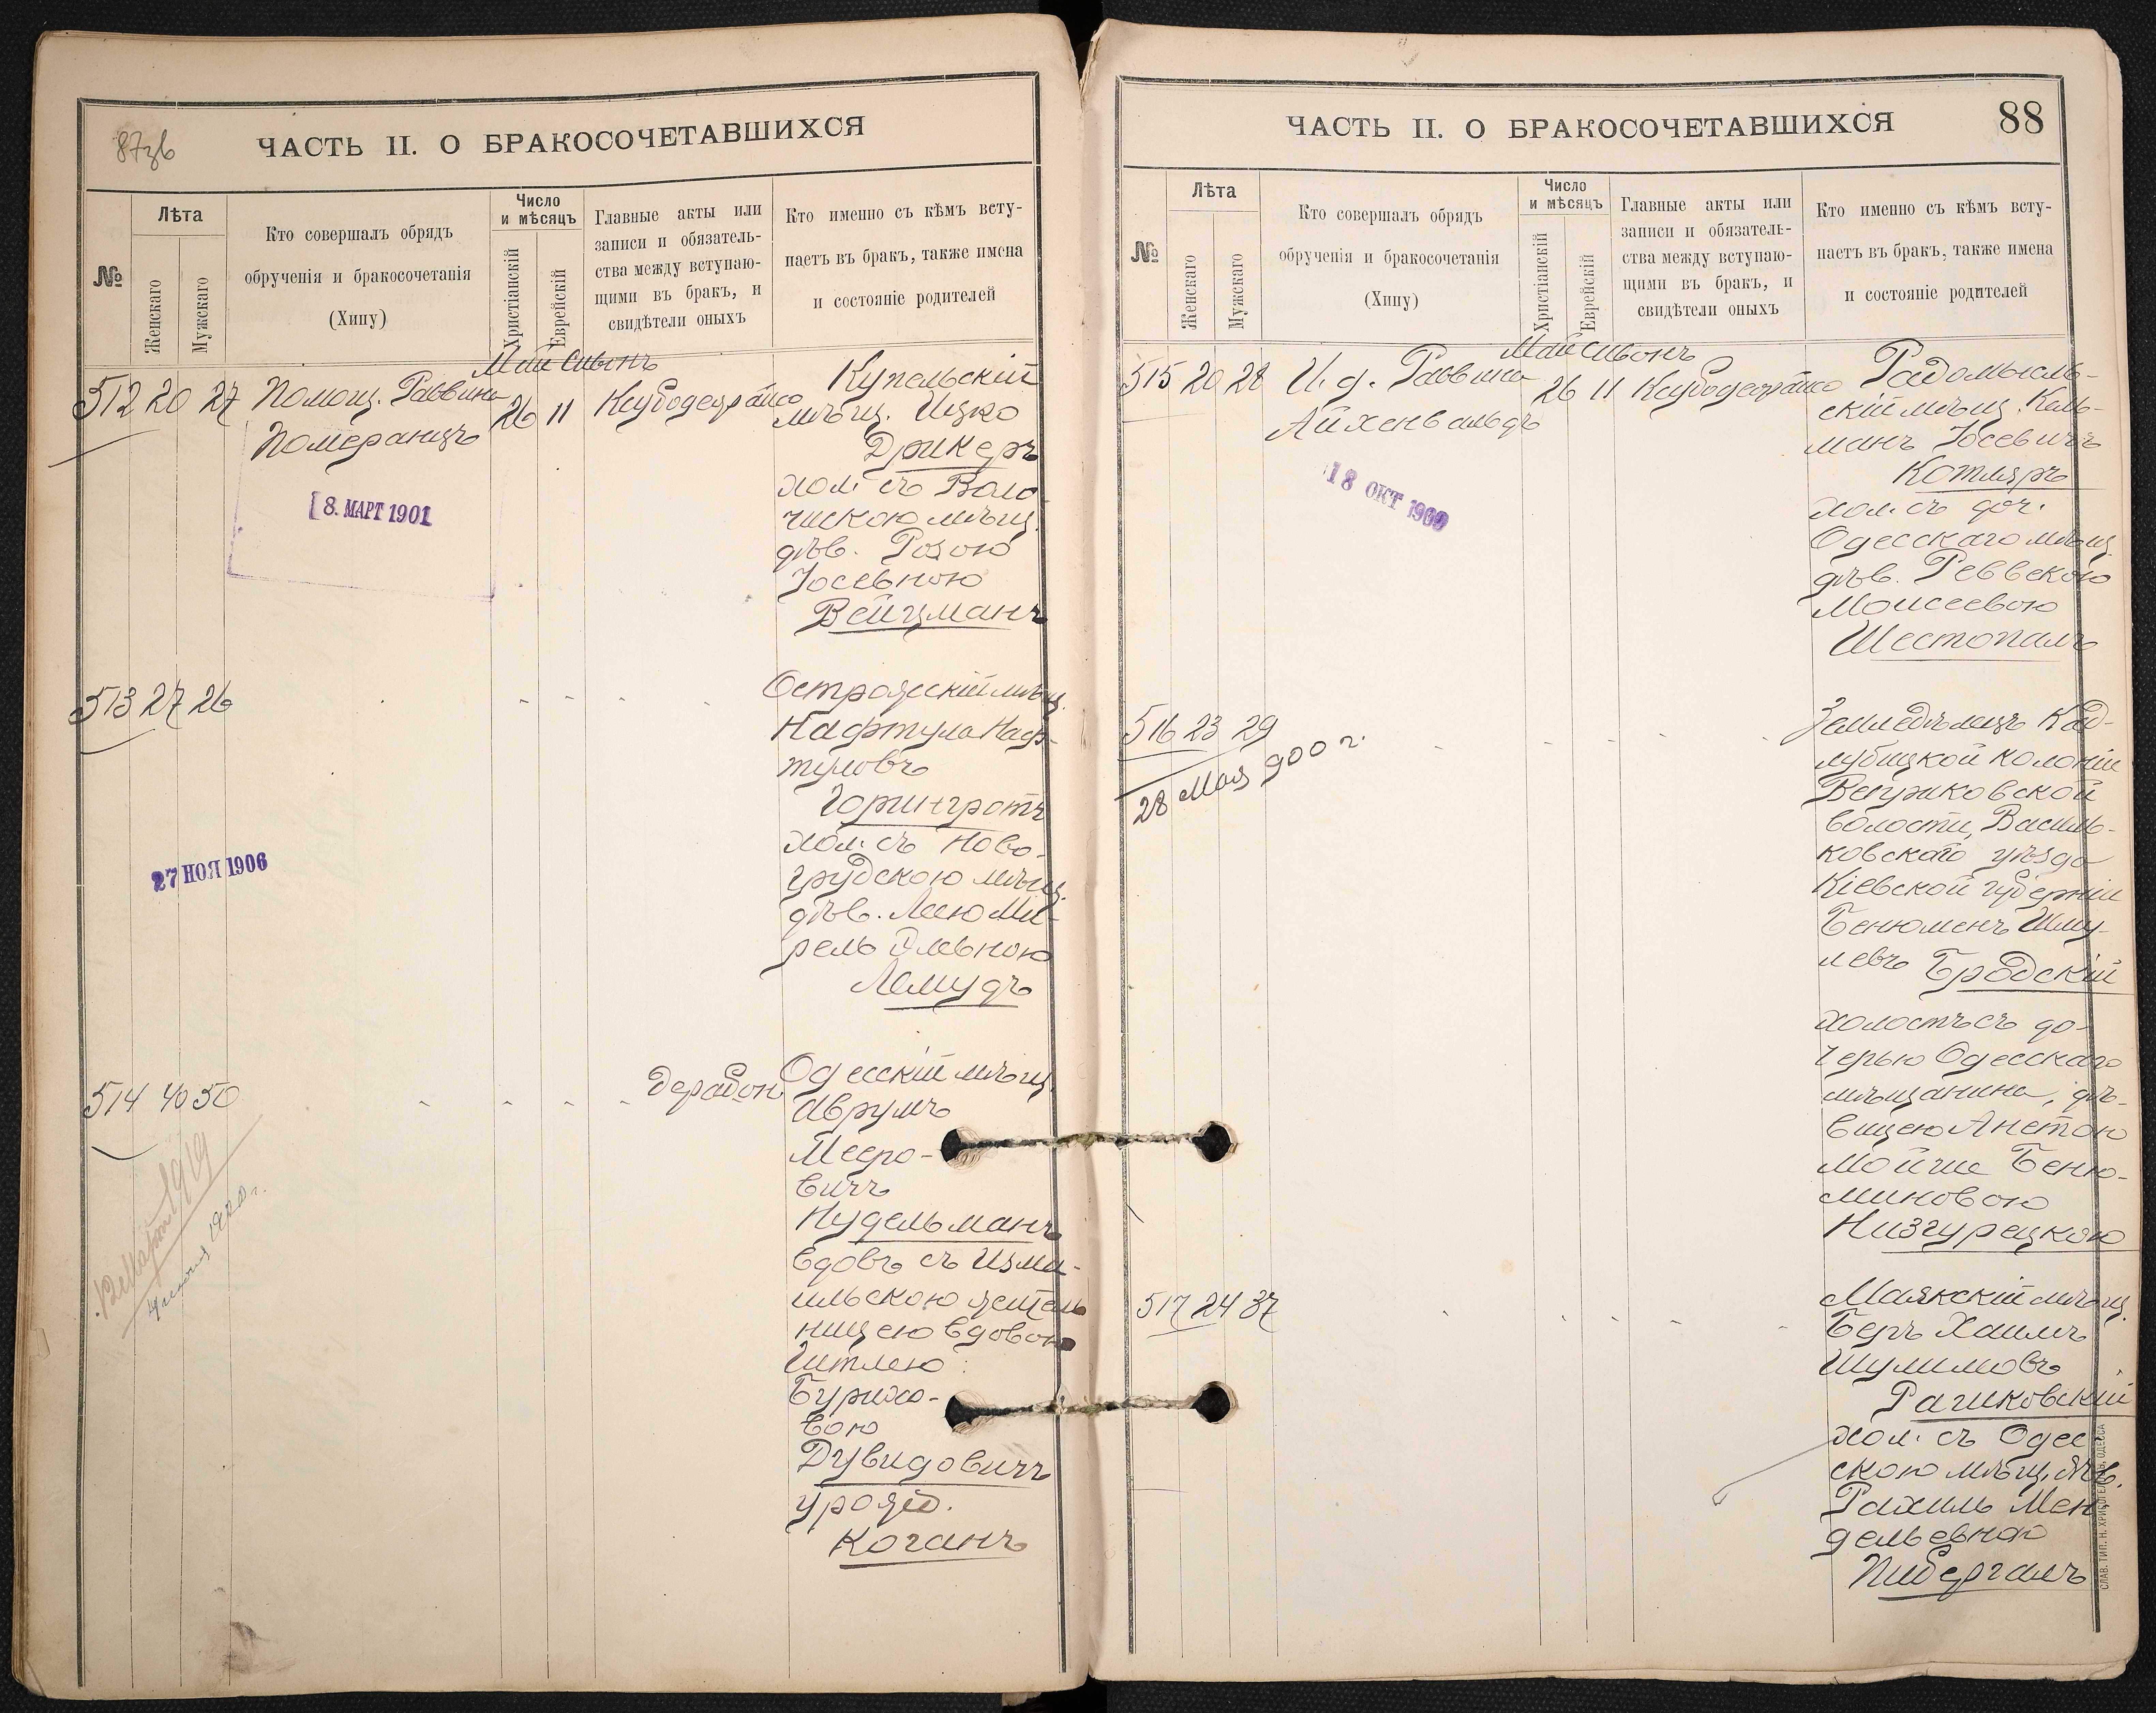 87зв
ЧАСТЬ II. О БРАКОСОЧЕТАВШИХСЯ
№
Лѣта
Женскаго
Мужскаго
Кто совершалъ обрядъ
обрученія и бракосочетанія
(Хипу)
Число
и мѣсяцъ
Христіанскій
Еврейскій
Главные акты или
записи и обязатель-
ства между вступаю-
щими въ бракъ, и
свидѣтели оныхъ
Кто именно съ кѣмъ всту-
паетъ въ бракъ, также имена
и состояніе родителей
Май Сивонъ
512 20 27
Помощ. Раввина
Померанцъ
26 11
8. МАРТ 1901
Купельскій
мѣщ. Ицко
Дрикеръ
хол. съ Воло-
чискою мѣщ.
дѣв. Розою
Іосевною
Вейцманъ
513 27 26
27 НОЯ 1906
Острожскій мѣщ.
Нафтула Наф-
туловъ
Горингротъ
хол. съ Ново-
грудскою мѣщ.
дѣв. Леею Ми-
рель
Лемудъ
514 40 50
1919
4 1920 г.
Одесскій мѣщ.
Аврумъ
Мееро-
вичъ
Нудельманъ
вдовъ съ Изма-
ильскою жатель
ницею вдовою
Гитлею
Бурихо-
вою
Дувидовичъ
урожд.
Коганъ
ЧАСТЬ II. О БРАКОСОЧЕТАВШИХСЯ
88
№
Лѣта
Женскаго
Мужскаго
Кто совершалъ обрядъ
обрученія и бракосочетанія
(Хипу)
Число
и мѣсяцъ
Христіанскій
Еврейскій
Главные акты или
записи и обязатель-
ства между вступаю-
щими въ бракъ, и
свидѣтели оныхъ
Кто именно съ кѣмъ всту-
паетъ въ бракъ, также имена
и состояніе родителей
Май Сивонъ
515 20 28
И. д. Раввина
Айхенвальдъ
26 11
18 ОКТ 1900
Радомысль-
скій мѣщ. Каль-
манъ Іосевичъ
Котляръ
хол. съ доч.
Одесскаго мѣщ.
дѣв. Реввекою
Моисеевою
Шестопалъ
516 23 29
28 Мая 900 г.
Земледѣлецъ Кад-
лубицкой колоніи
Веприковской
волости, Василь-
ковскаго уѣзда
Кіевской губерніи
Бенюменъ Шму-
левъ Бродскій
холостъ съ до-
черью Одесскаго
мѣщанина, дѣ-
вицею Анетою
Мойше Беню-
миновою
Низгурецкою
517 24 37
Маякскій мѣщ.
Беръ Хаимъ
Шулимовъ
Рашковскій
хол. съ Одес-
скою мѣщ. дѣв.
Рахиль Мен-
дельевною
Пибергалъ
СЛАВ. ТИП. Н. ХРИСОГЕЛОСЪ, ОДЕССА